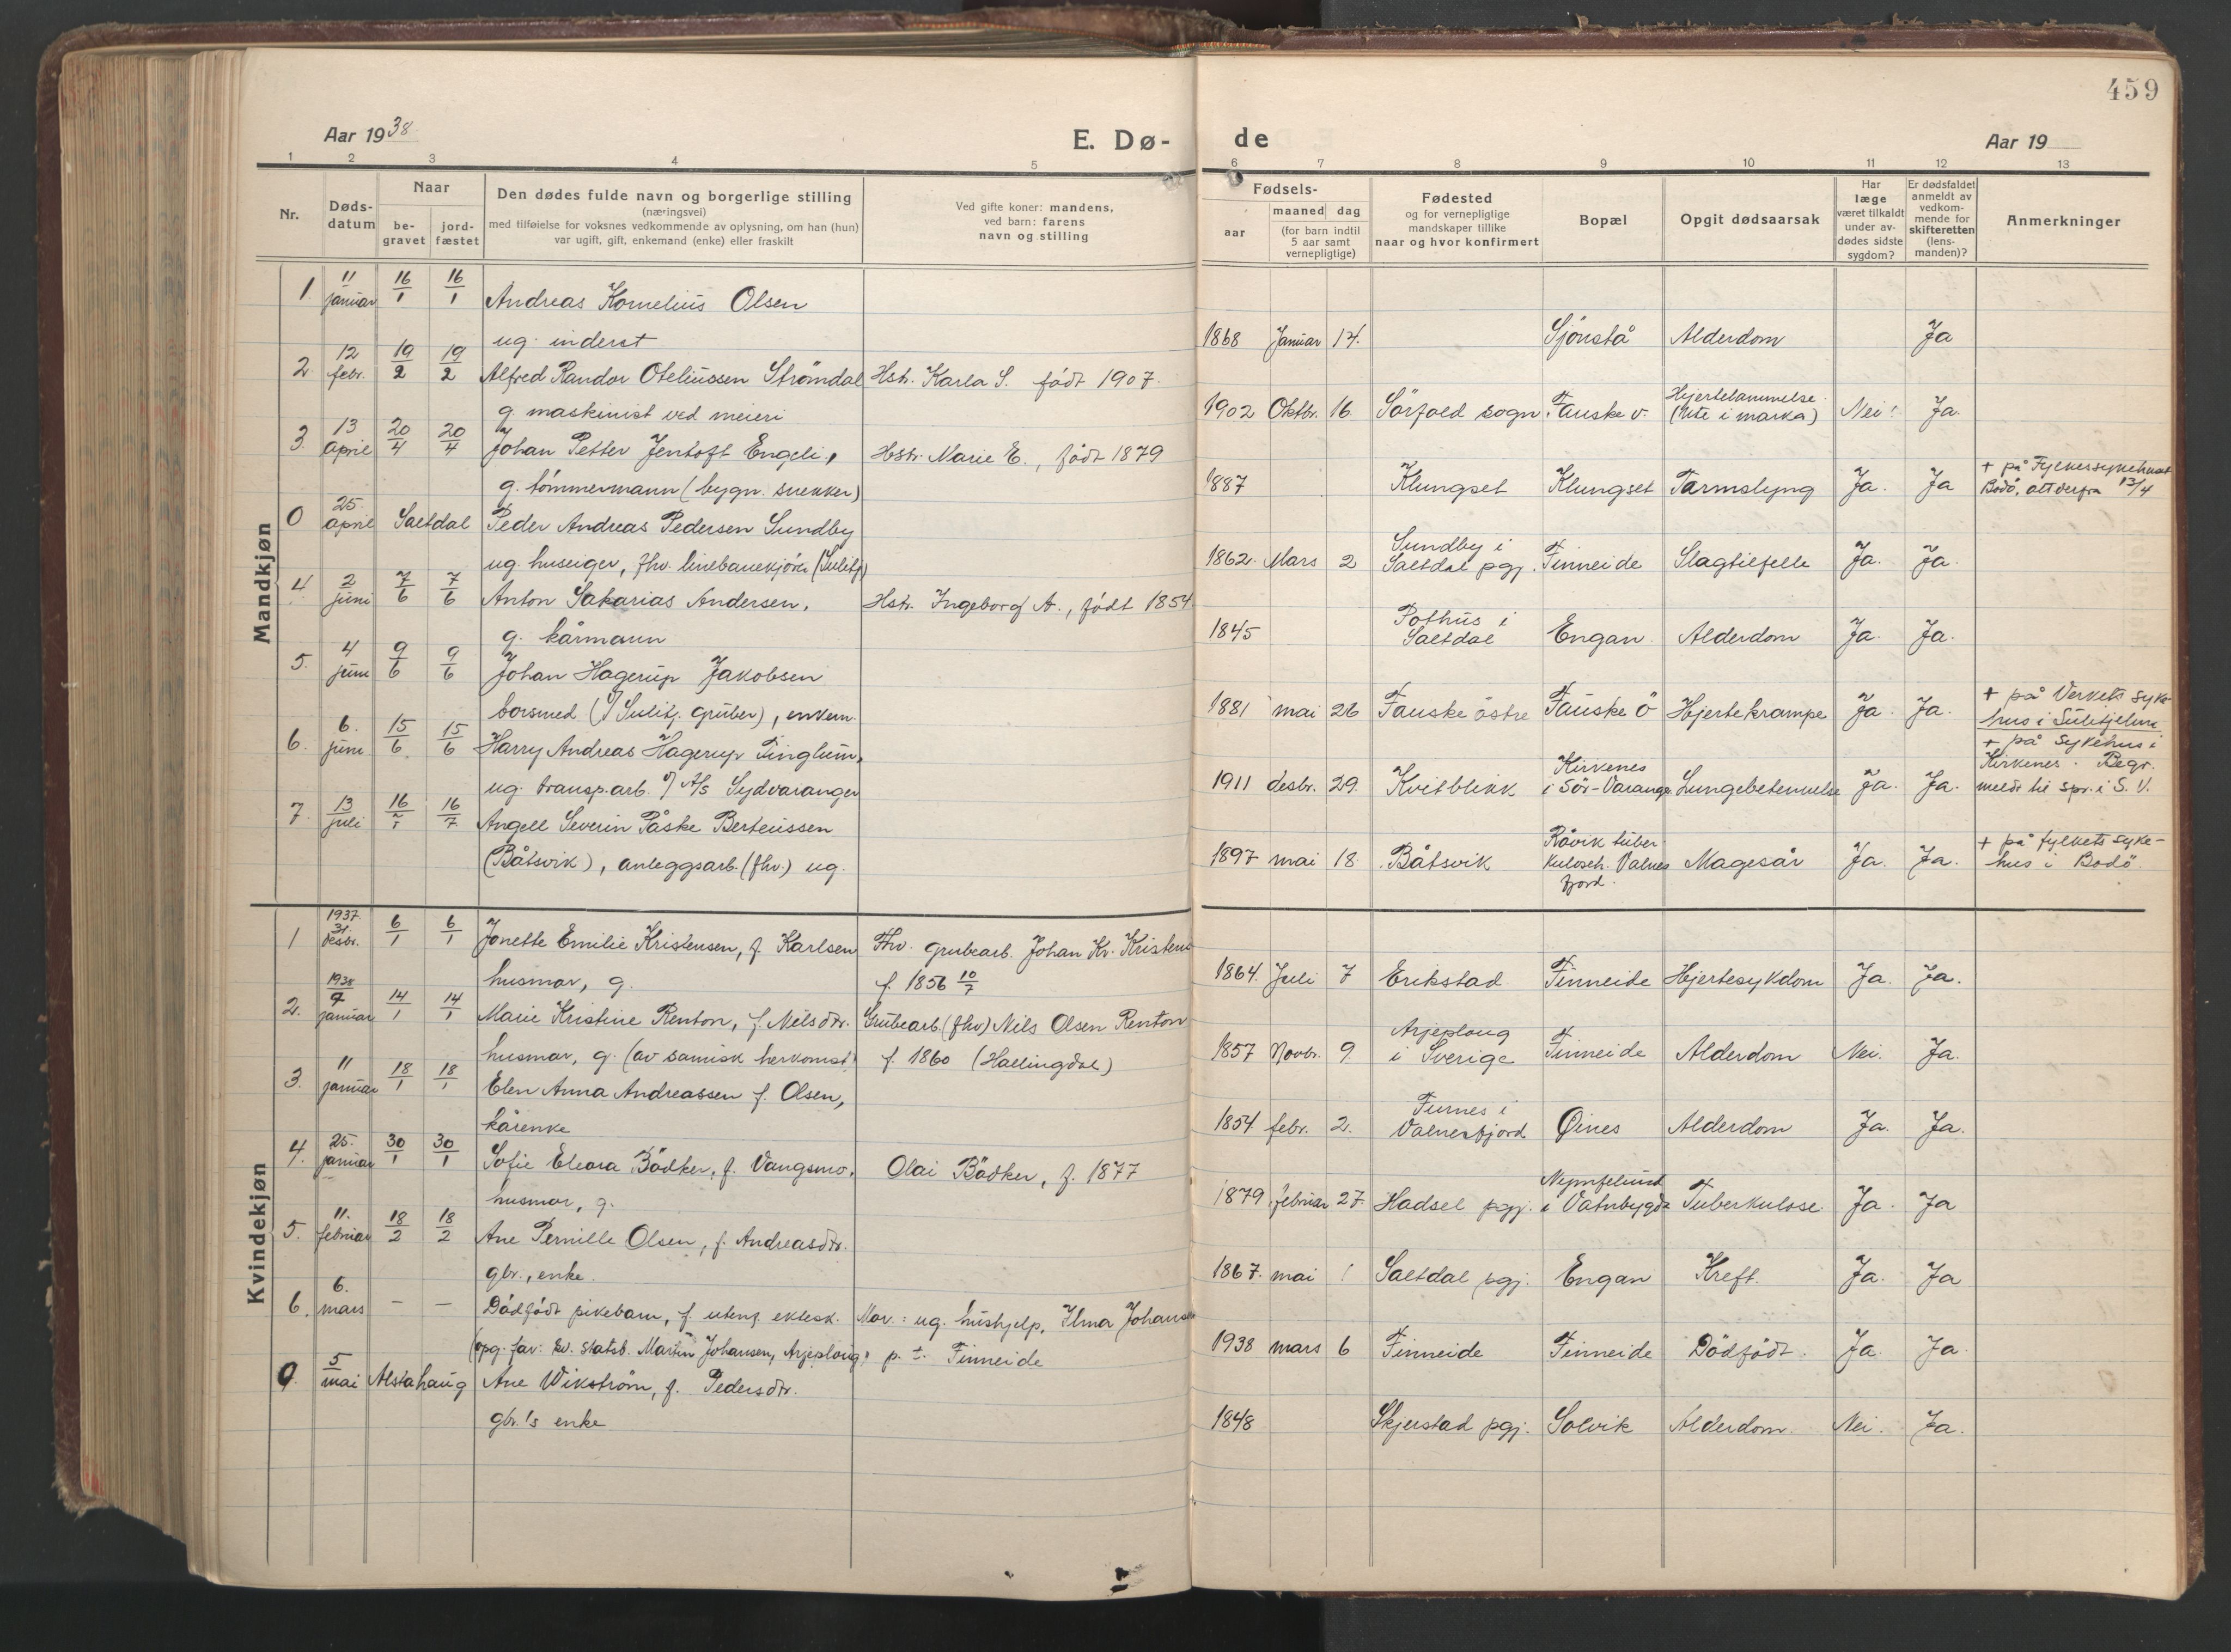 459
Aar 1938
E. Dø-
de
Aar 19
1 2 3 4 5 6 7 8 9 10 11 12 13
Nr.
Døds-
datum
Naar
be-
gravet
jord-
fæstet
Den dødes fulde navn og borgerlige stilling
(næringsvei)
med tilføielse for voksnes vedkommende av oplysning, om han (hun)
var ugift, gift, enkemand (enke) eller fraskilt
Ved gifte koner: mandens,
ved barn: farens
navn og stilling
Fødsels-
aar
maaned dag
(for barn indtil
5 aar samt
vernepligtige)
Fødested
og for vernepligtige
mandskaper tillike
naar og hvor konfirmert
Bopæl
Opgit dødsaarsak
Har
læge
været tilkaldt
under av-
dødes sidste
sygdom?
Er dødsfaldet
anmeldt av
vedkom-
mende for
skifteretten
(lens-
manden)?
Anmerkninger
Mandkjøn
1. 11 januar 16/1 16/1 Andreas Kornelius Olsen
ug. inderst 1868 Januar 14. Sjönstå Alderdom Ja
2. 12 febr. 19/2 19/2 Alfred Randor Oteliussen Strömdal Hstr. Karla S. födt 1907.
g. maskinist ved meieri 1902 Oktbr. 16 Sörfold sogn. Fauske v. Hjertelammelse (Ute i marka) Nei! Ja.
3. 13 april 20/4 20/4 Johan Petter Jentoft Engeli, Hstr. Marie E., födt 1879
g. tömmermann (bygn. snekker) 1887 Klungset Klungset Tarmslyng Ja. Ja + på Fylkessykehuset
Bodö, att derfra 13/4
0 25. april Saltdal Peder Andreas Pedersen Sundby
ug. huseiger, fhv. linebanekjörer (Sulitj.) 1862. Mars 2 Sundby i
Saltdal pgj. Finneide Slagtilfelle Ja. Ja.
4 2 juni 7/6 7/6 Anton Sakarias Andersen, Hstr. Ingeborg A., födt 1854.
g. kårmann 1845 Pothus i
Saltdal Engan. Alderdom Ja. Ja.
5. 4 juni 9/6 9/6 Johan Hagerup Jakobsen
borsmed (v/ Sulitj. Gruber), enkem. 1881 mai 26 Fauske östre Fauske ö Hjertekrampe Ja. Ja. + på Verkets syke-
hus i Sulitjelma
6. 6. juni 15/6. 15/6 Harry Andreas Hagerup Tinglum,
ug. transp.arb. v/ A/s Sydvaranger 1911 desbr. 29. Kvitblikk Kirkenes
i Sör-Varanger Lungebetennelse Ja. Ja. + på sykehus i
Kirkenes. Begr.
meldt til spr. i S. V.
7. 13 juli 16/7 16/7 Angell Severin Påske Berteussen
(Båtsvik), anleggsarb. (fhv.) ug. 1897 mai 18. Båtsvik Råvik tuber-
kulosehj. Valnes
fjord. Magesår Ja. Ja. + på fylkets syke-
hus i Bodö.
Kvindekjøn
1 1937 31. desbr. 6/1 6/1 Jonette Emilie Kristensen, f. Karlsen Fhv. grubearb. Johan Kr. Kristens
husmor, g. f. 1856 10/7 1864. Juli 7 Erikstad Finneide Hjertesykdom Ja. Ja.
2. 1938 9 januar 14/1 14/1 Marie Kristine Renton, f. Nilsdtr. Grubearb. (fhv) Nils Olsen Renton
husmor, g. (av samisk herkomst) f. 1860 (Hallingdal) 1857 Novbr. 9. Arjeploug
i Sverige Finneide Alderdom Nei. Ja.
3. 11 januar 18/1 18/1 Elen Anna Andreassen f. Olsen,
kårenke 1854 febr. 2. Furnes i
Valnesfjord Øines Alderdom Ja. Ja.
4. 25. januar 30/1 30/1 Sofie Eleora Bödker, f. Vangsmo, Olai Bödker, f. 1877
husmor, g. 1879. februar 27. Hadsel pgj. Nymfelund
i Vatnbygda Tuberkulose. Ja. Ja
5. 11. februar 18/2 18/2 Ane Pernille Olsen, f. Andreasdtr.
gbr., enke. 1867. mai 1 Saltdal pgj. Engan Kreft. Ja. Ja
6. 6. mars – – Dödfödt pikebarn, f. utenf. ektesk. Mor: ug. hushjelp, Ilma Johansen
(opg. far: sv. statsb. Martin Johansen, Arjeploug) p. t. Finneide 1938 mars 6 Finneide Finneide Dödfödt. Ja. Ja.
0. 5 mai Alstahaug Ane Wikström, f. Pedersdtr.
gbr.'s enke 1848 Skjerstad pgj. Solvik Alderdom. Nei. Ja.